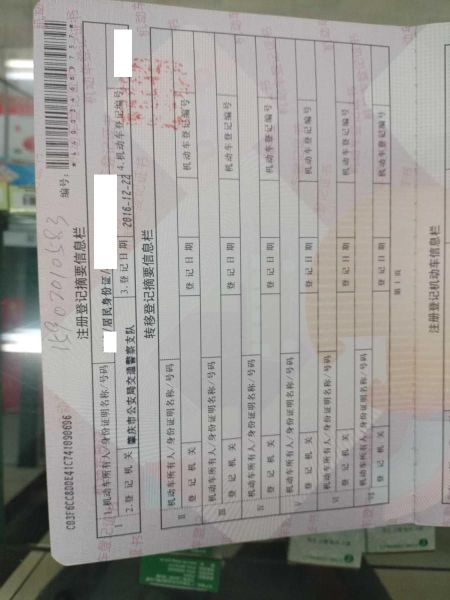 注册登记摘要信息栏
编号:
I
1.机动车所有人/身份证明名称/号码
/居民身份证/
2.登记机关
肇庆市公安局交通警察支队
3.登记日期
2016-12-22
4.机动车登记编号
转移登记摘要信息栏
机动车所有人/身份证明名称/号码
II
登记机关
登记日期
机动车登记编号
机动车所有人/身份证明名称/号码
III
登记机关
登记日期
机动车登记编号
机动车所有人/身份证明名称/号码
IV
登记机关
登记日期
机动车登记编号
机动车所有人/身份证明名称/号码
V
登记机关
登记日期
机动车登记编号
机动车所有人/身份证明名称/号码
VI
登记机关
登记日期
机动车登记编号
机动车所有人/身份证明名称/号码
VII
登记机关
登记日期
机动车登记编号
第1页
注册登记机动车信息栏